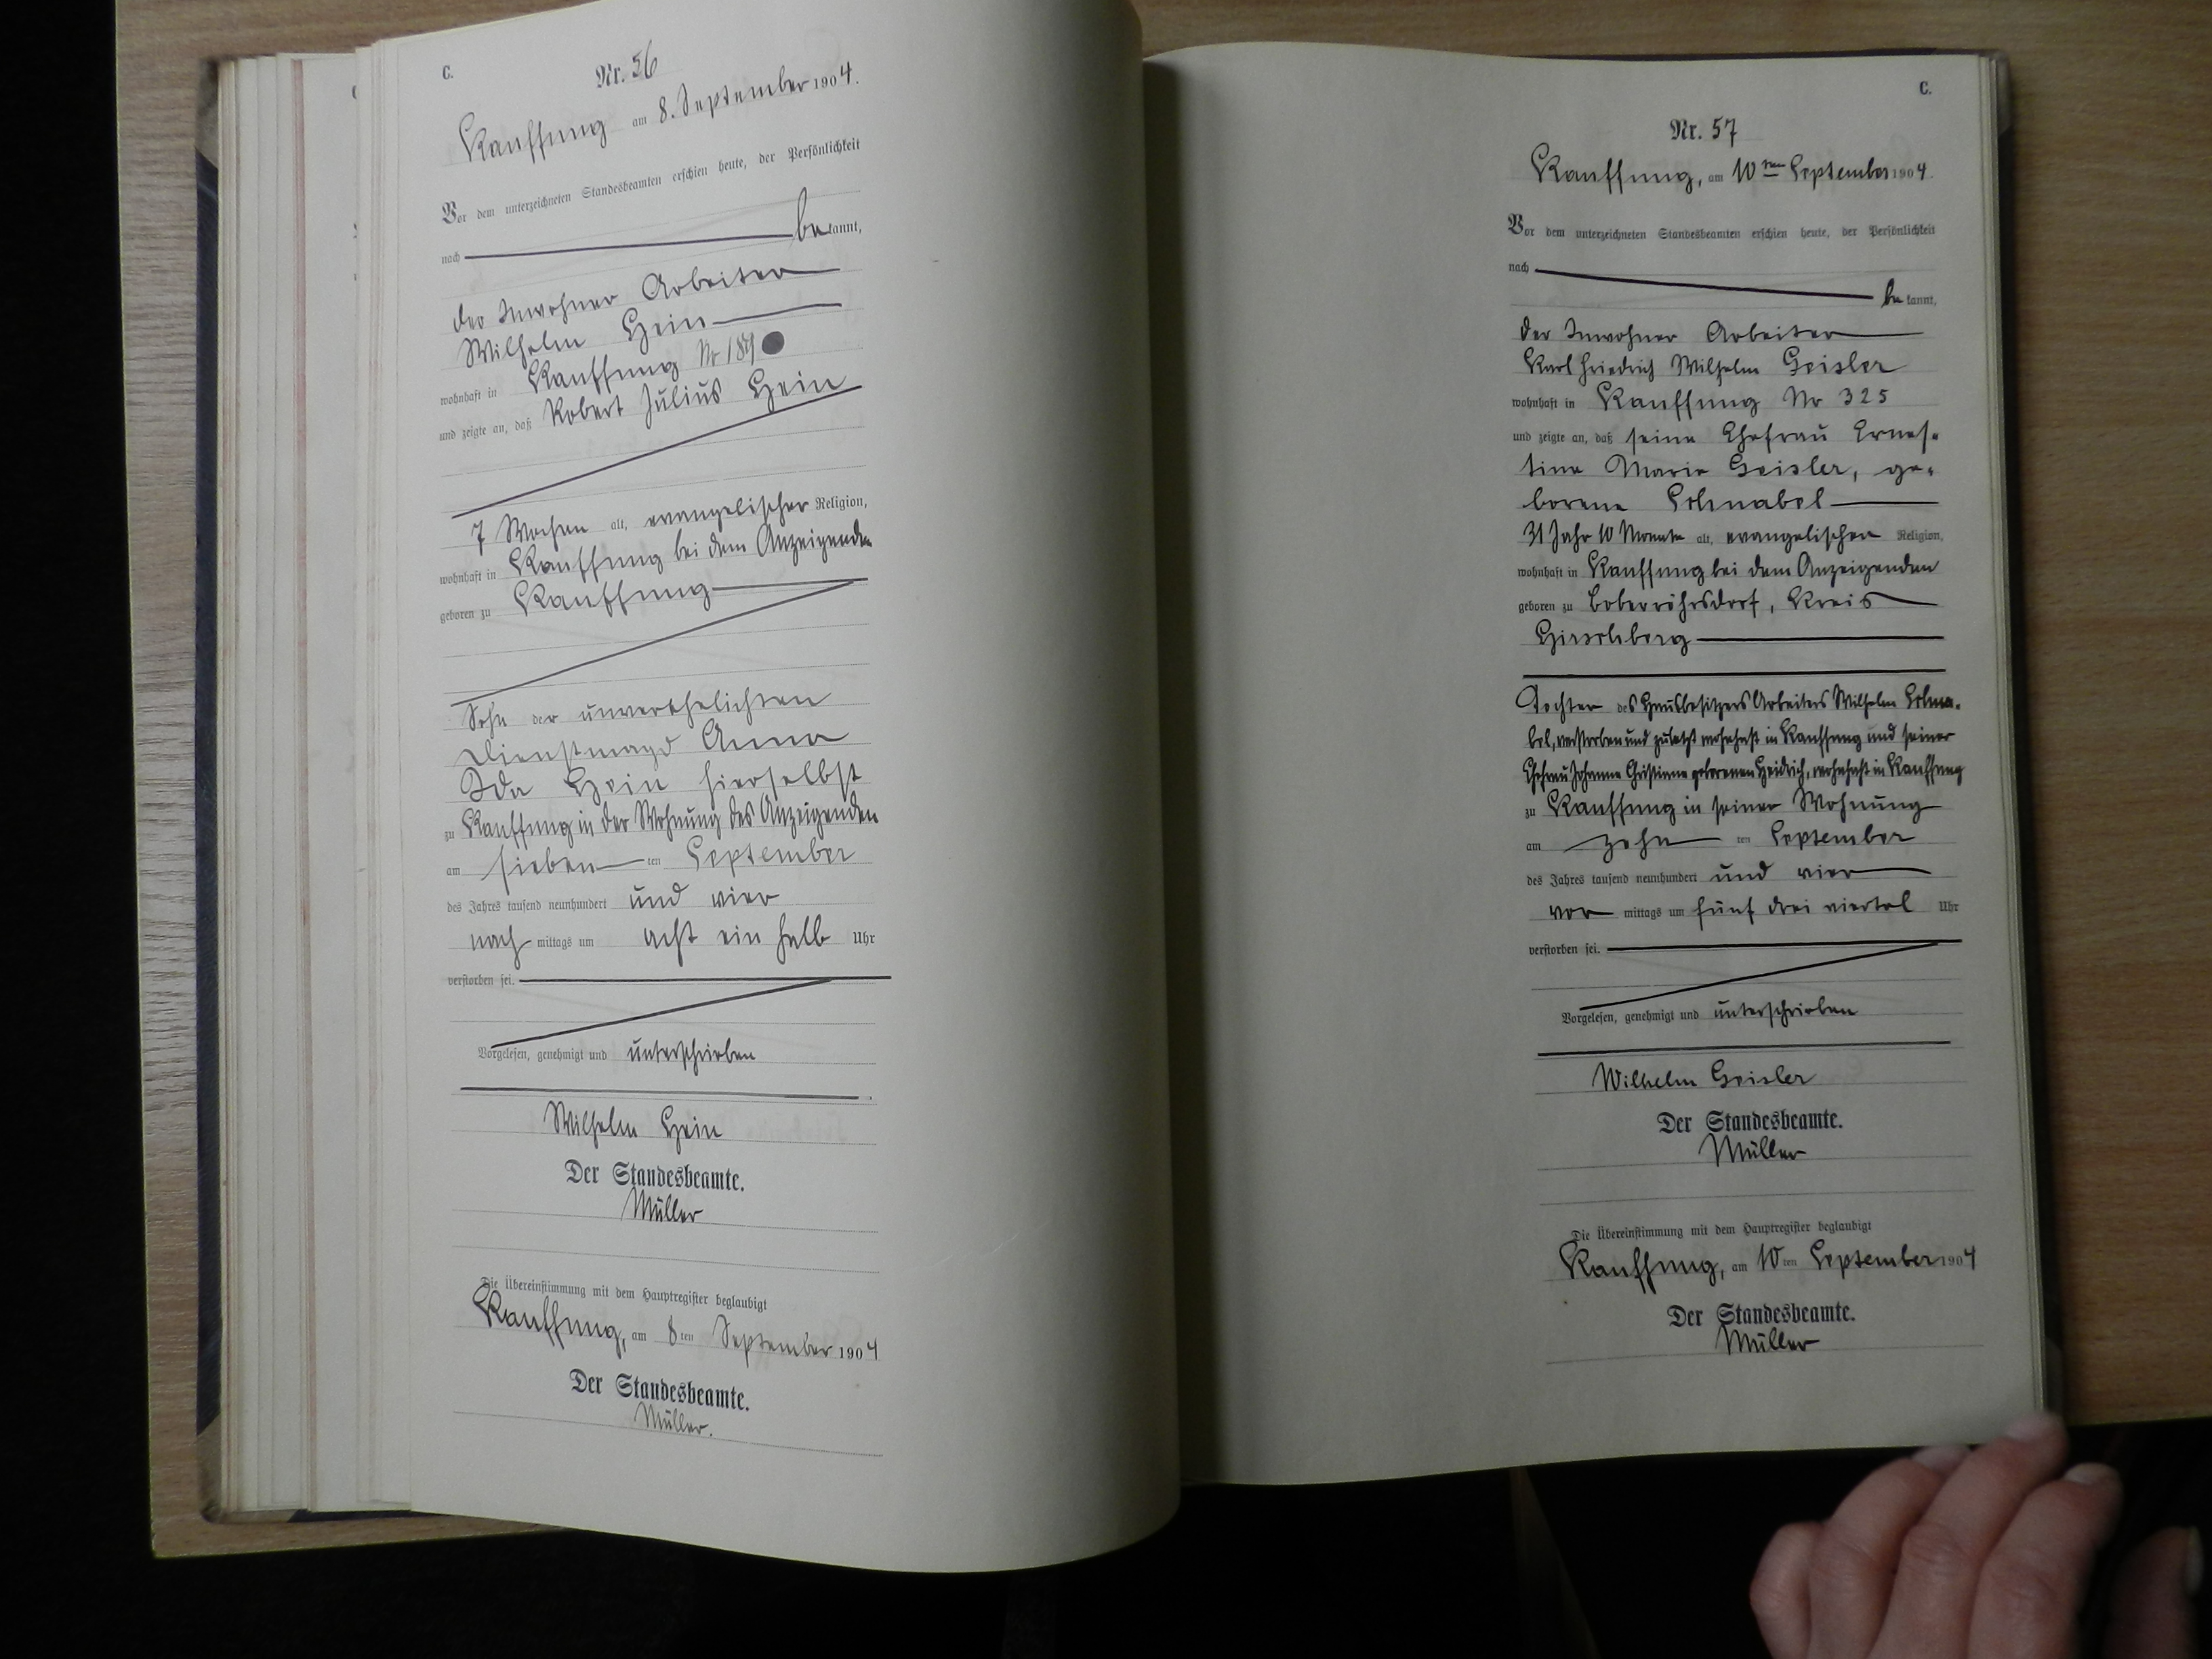 C.
Nr. 56
Kauffung am 8. September 1904.
Vor dem unterzeichneten Standesbeamten erschien heute, der Persönlichkeit
nach be kannt,
der Inwohner Arbeiter
Wilhelm Hein
wohnhaft in Kauffung Nr
und zeigte an, daß Robert Julius Hein
7 Wochen alt, evangelischer Religion,
wohnhaft in Kauffung bei dem Anzeigenden
geboren zu Kauffung
Sohn der unverehelichten
Dienstmagd Anna
Ida Hein hierselbst
zu Kauffung in der Wohnung des Anzeigenden
am sieben ten September
des Jahres tausend neunhundert und vier
nach mittags um acht ein halb Uhr
verstorben sei.
Vorgelesen, genehmigt und unterschrieben
Wilhelm Hein
Der Standesbeamte.
Müller
Die Übereinstimmung mit dem Hauptregister beglaubigt
Kauffung, am 8ten September 1904
Der Standesbeamte.
Müller.
C.
Nr. 57
Kauffung, am 10ten September 1904.
Vor dem unterzeichneten Standesbeamten erschien heute, der Persönlichkeit
nach
be kannt,
der Inwohner Arbeiter
Karl Friedrich Wilhelm Geisler
wohnhaft in Kauffung Nr 325
und zeigte an, daß seine Ehefrau Ernes-
tine Marie Geisler, ge-
borene Schnabel
31 Jahr 10 Monate alt, evangelischer Religion,
wohnhaft in Kauffung bei dem Anzeigenden
geboren zu Boberröhrsdorf, Kreis
Hirschberg
Tochter des Hausbesitzers Arbeiters Wilhelm Schna-
bel, verstorben und zuletzt wohnhaft in Kauffung und seiner
Ehefrau Johanne Christiane geborenen Heidrich, wohnhaft in Kauffung
zu Kauffung in seiner Wohnung
am zehn ten September
des Jahres tausend neunhundert und vier
vor mittags um fünf drei viertel Uhr
verstorben sei.
Vorgelesen, genehmigt und unterschrieben
Wilhelm Geisler
Der Standesbeamte.
Müller
Die Übereinstimmung mit dem Hauptregister beglaubigt
Kauffung, am 10ten September 1904
Der Standesbeamte.
Müller